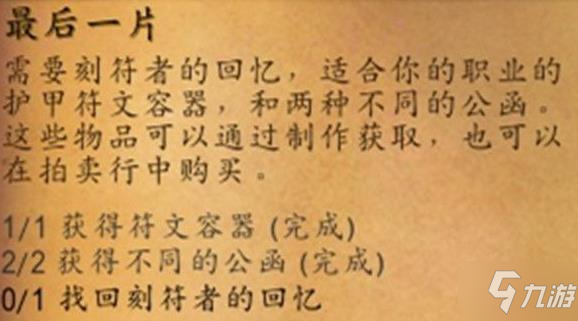 最后一片
需要刻符者的回忆，适合你的职业的
护甲符文容器，和两种不同的公函。
这些物品可以通过制作获取，也可以
在拍卖行中购买。
1/1 获得符文容器 (完成)
2/2 获得不同的公函 (完成)
0/1 找回刻符者的回忆
九游